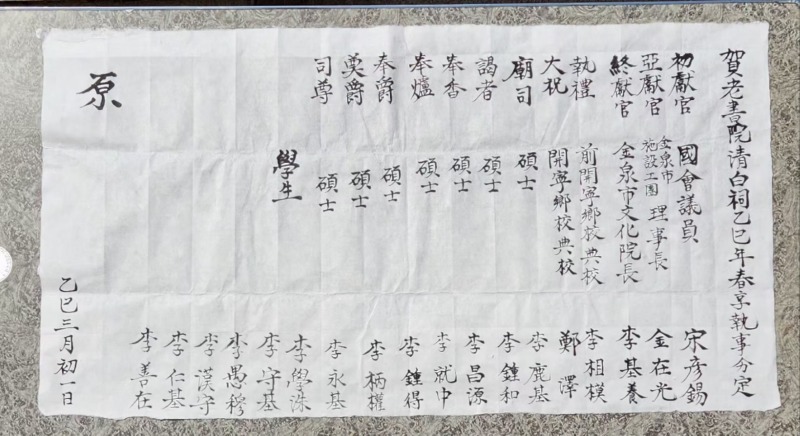 賀老書院清白祠乙巳年春享執事分定
初獻官 國會議員 宋彦錫
亞獻官 金泉市施設工團 理事長 金在光
終獻官 金泉市文化院長 李基養
執禮 前開寧鄉校典校 李相模
大祝 開寧鄉校典校 鄭澤
廟司 碩士 李鹿基
謁者 碩士 李鍾和
奉香 碩士 李昌源
奉爐 碩士 李就中
奉爵 碩士 李鍾得
奠爵 碩士 李柄權
司尊 碩士 李永基
學生 李學洙
李守基
李愚穆
李漢守
李仁基
李善在
原
乙巳三月初一日